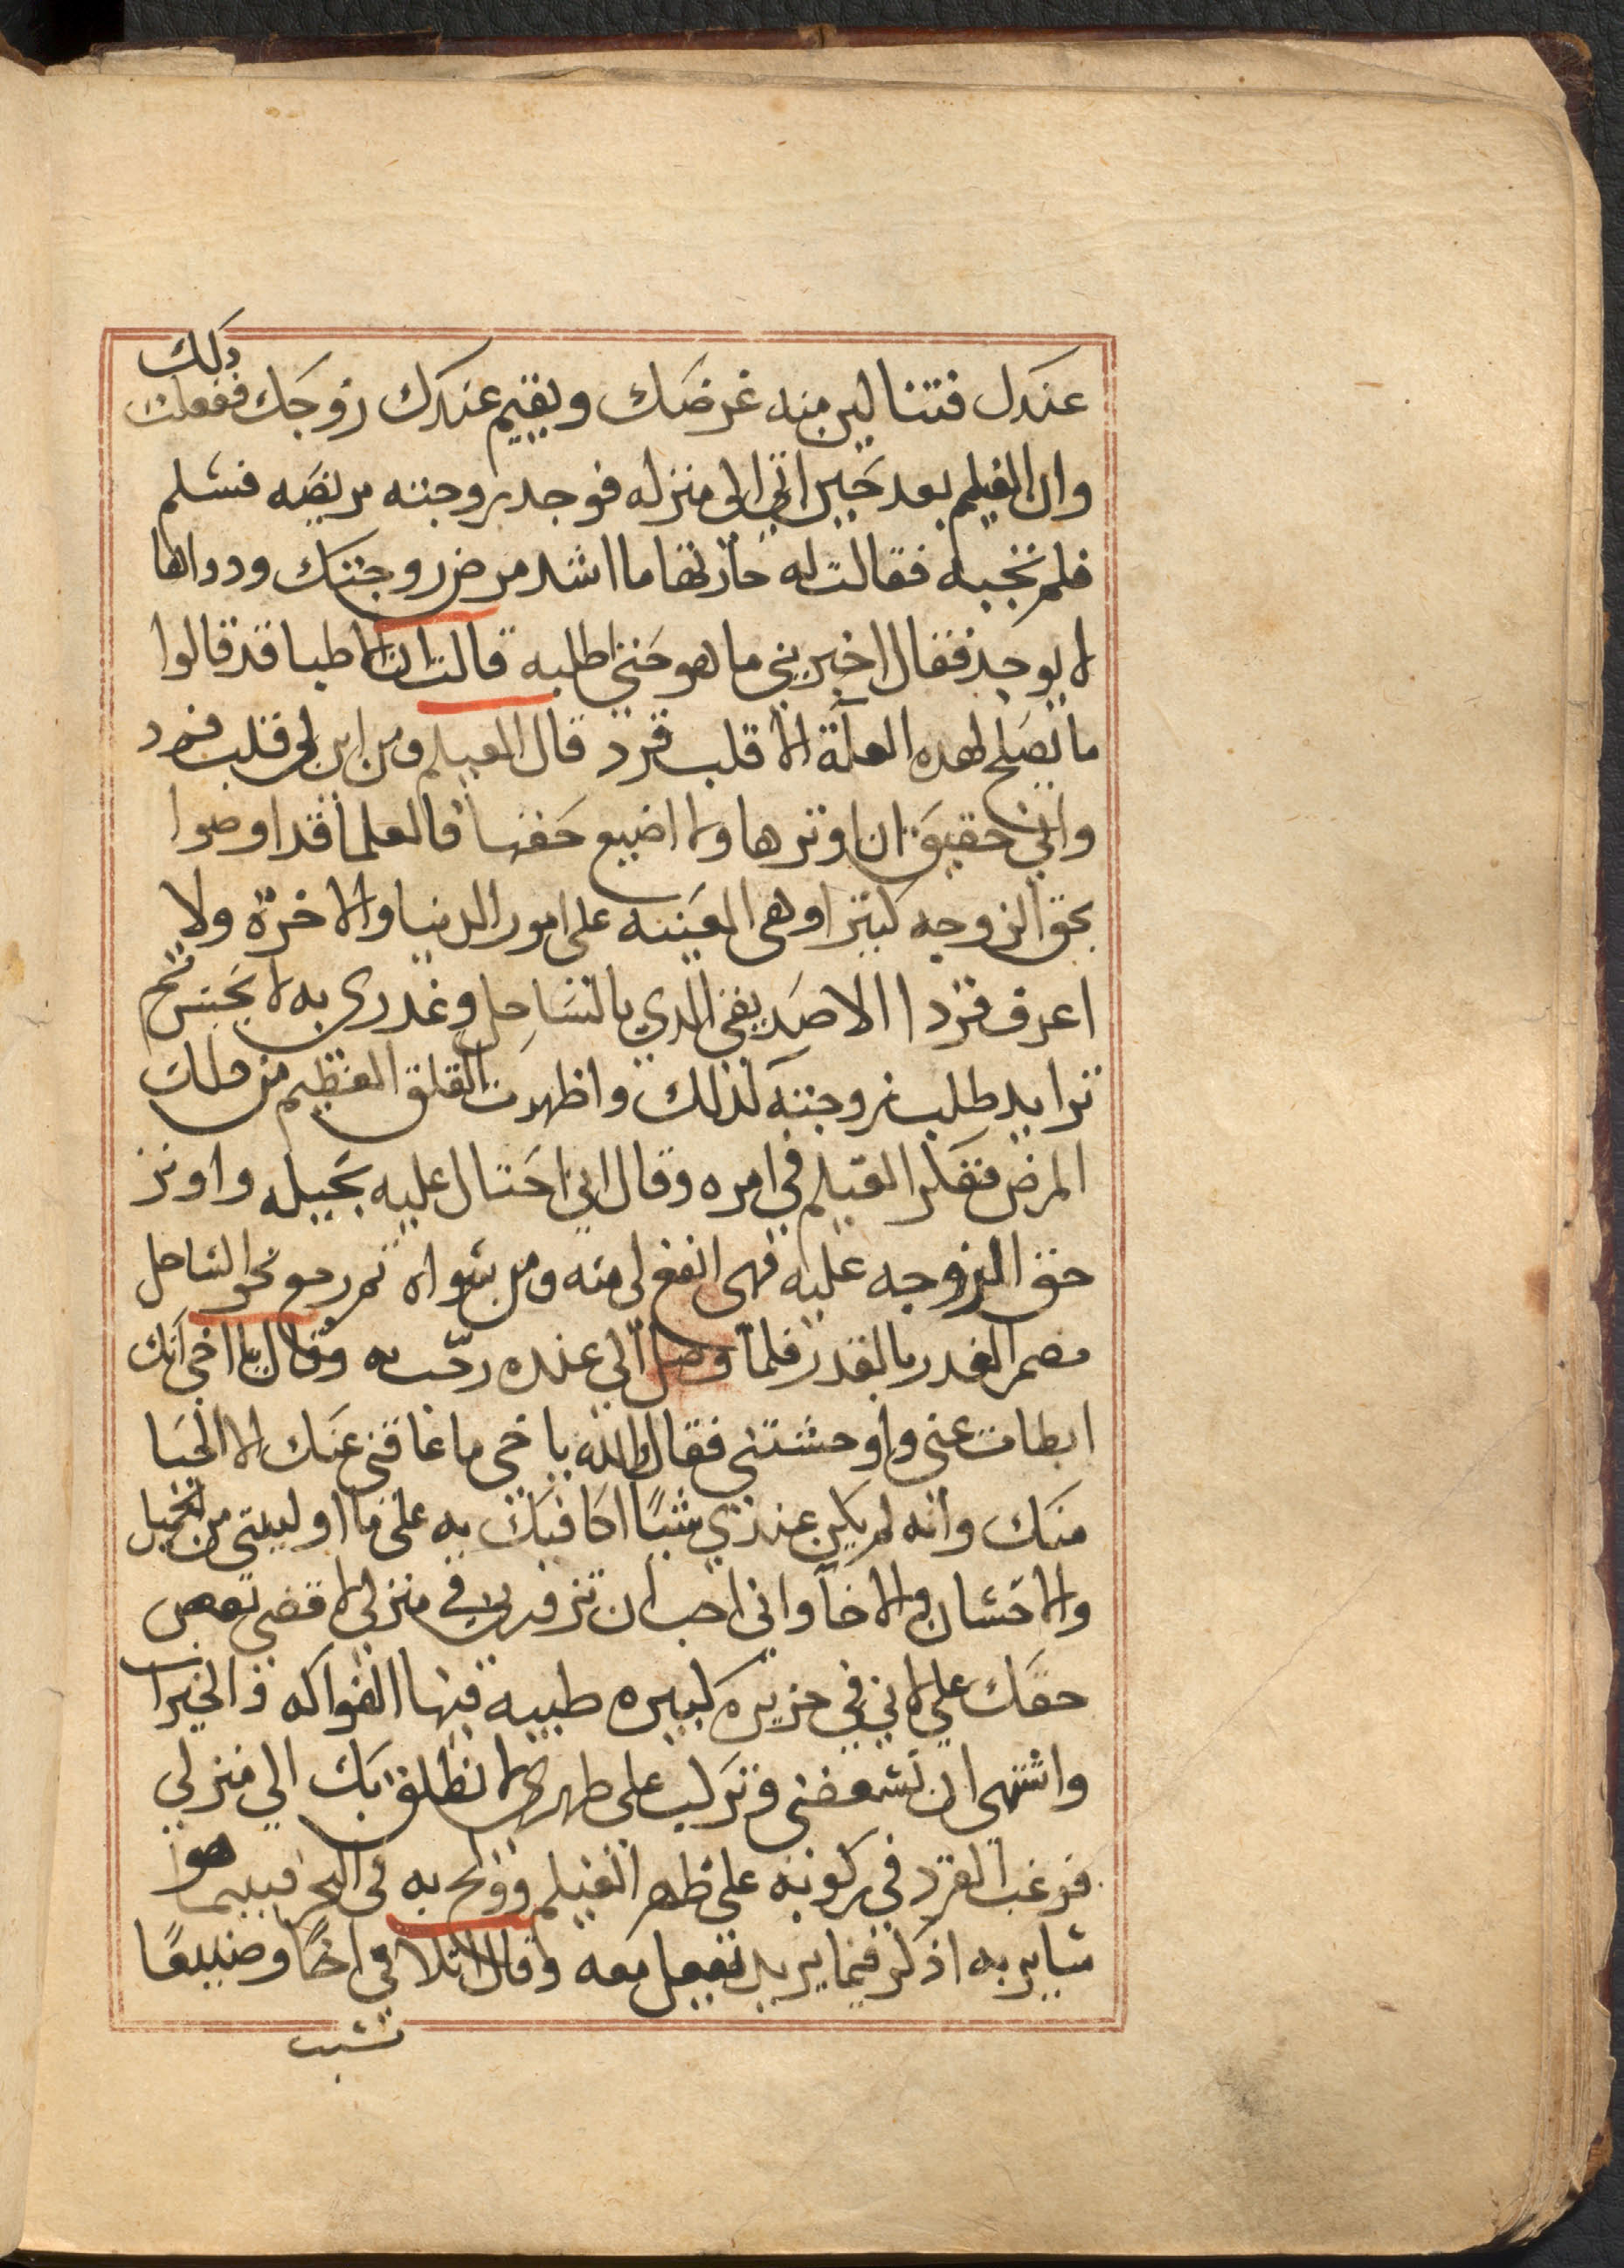 عندك فتنالين منه غرضك ويقيم عندك زوجك ففعلت ذلك
وان الغيلم بعد حين اتى الى منزله فوجد زوجته مريضه فسلم
فلم تجبه فقالت له جارتها ما اشد مرض زوجتك ودواها
لا يوجد فقال اخبريني ما هو حتى اطلبه قالت ان الاطبا قد قالوا
ما يصلح لهده العلة الا قلب قرد قال الغيلم ومن اين لي قلب قرد
واني حقيق ان اوثرها ولا اضيع حقها فالعلما قد اوصوا
بحق الزوجه كثيرا وهي المعينه على امور الدنيا والاخرة ولا
اعرف قردا الا صديقي الدي بالساحل وغدري به لا يحسن ثم
تزايد طلب زوجته لذلك واظهرت القلق العظيم من ملك
المرض فتفكر الغيلم في امره وقال اني احتال عليه بحيله واوثر
حق الزوجه عليه فهي انفع لي منه ومن سواه ثم رجع نحو الساحل
مضمر الغدر بالقرد فلما وصل الي عنده رحب به وقال يا اخي انك
ابطات عني واوحشتني فقال والله ياخي ما عاقني عنك الا الحيا
منك وانه لم يكن عندي شيًا اكافيك به على ما اوليتني من الجميل
والاحسان والاخا واني احب ان تزورني في منزلي لاقضي بعض
حقك علي لاني في جزيره كبيره طيبه فيها الفواكه والخيرات
واشتهي ان تسعفني وتركب على ظهري لانطلق بك الي منزلي
فرغب القرد في ركوبه على ظهر الغيلم وولج به في البحر فبينما هو
ساير به اذ فكر فيما يريد يفعل معه وقال لا تلاقي اخًا وضيعًا
تسبب